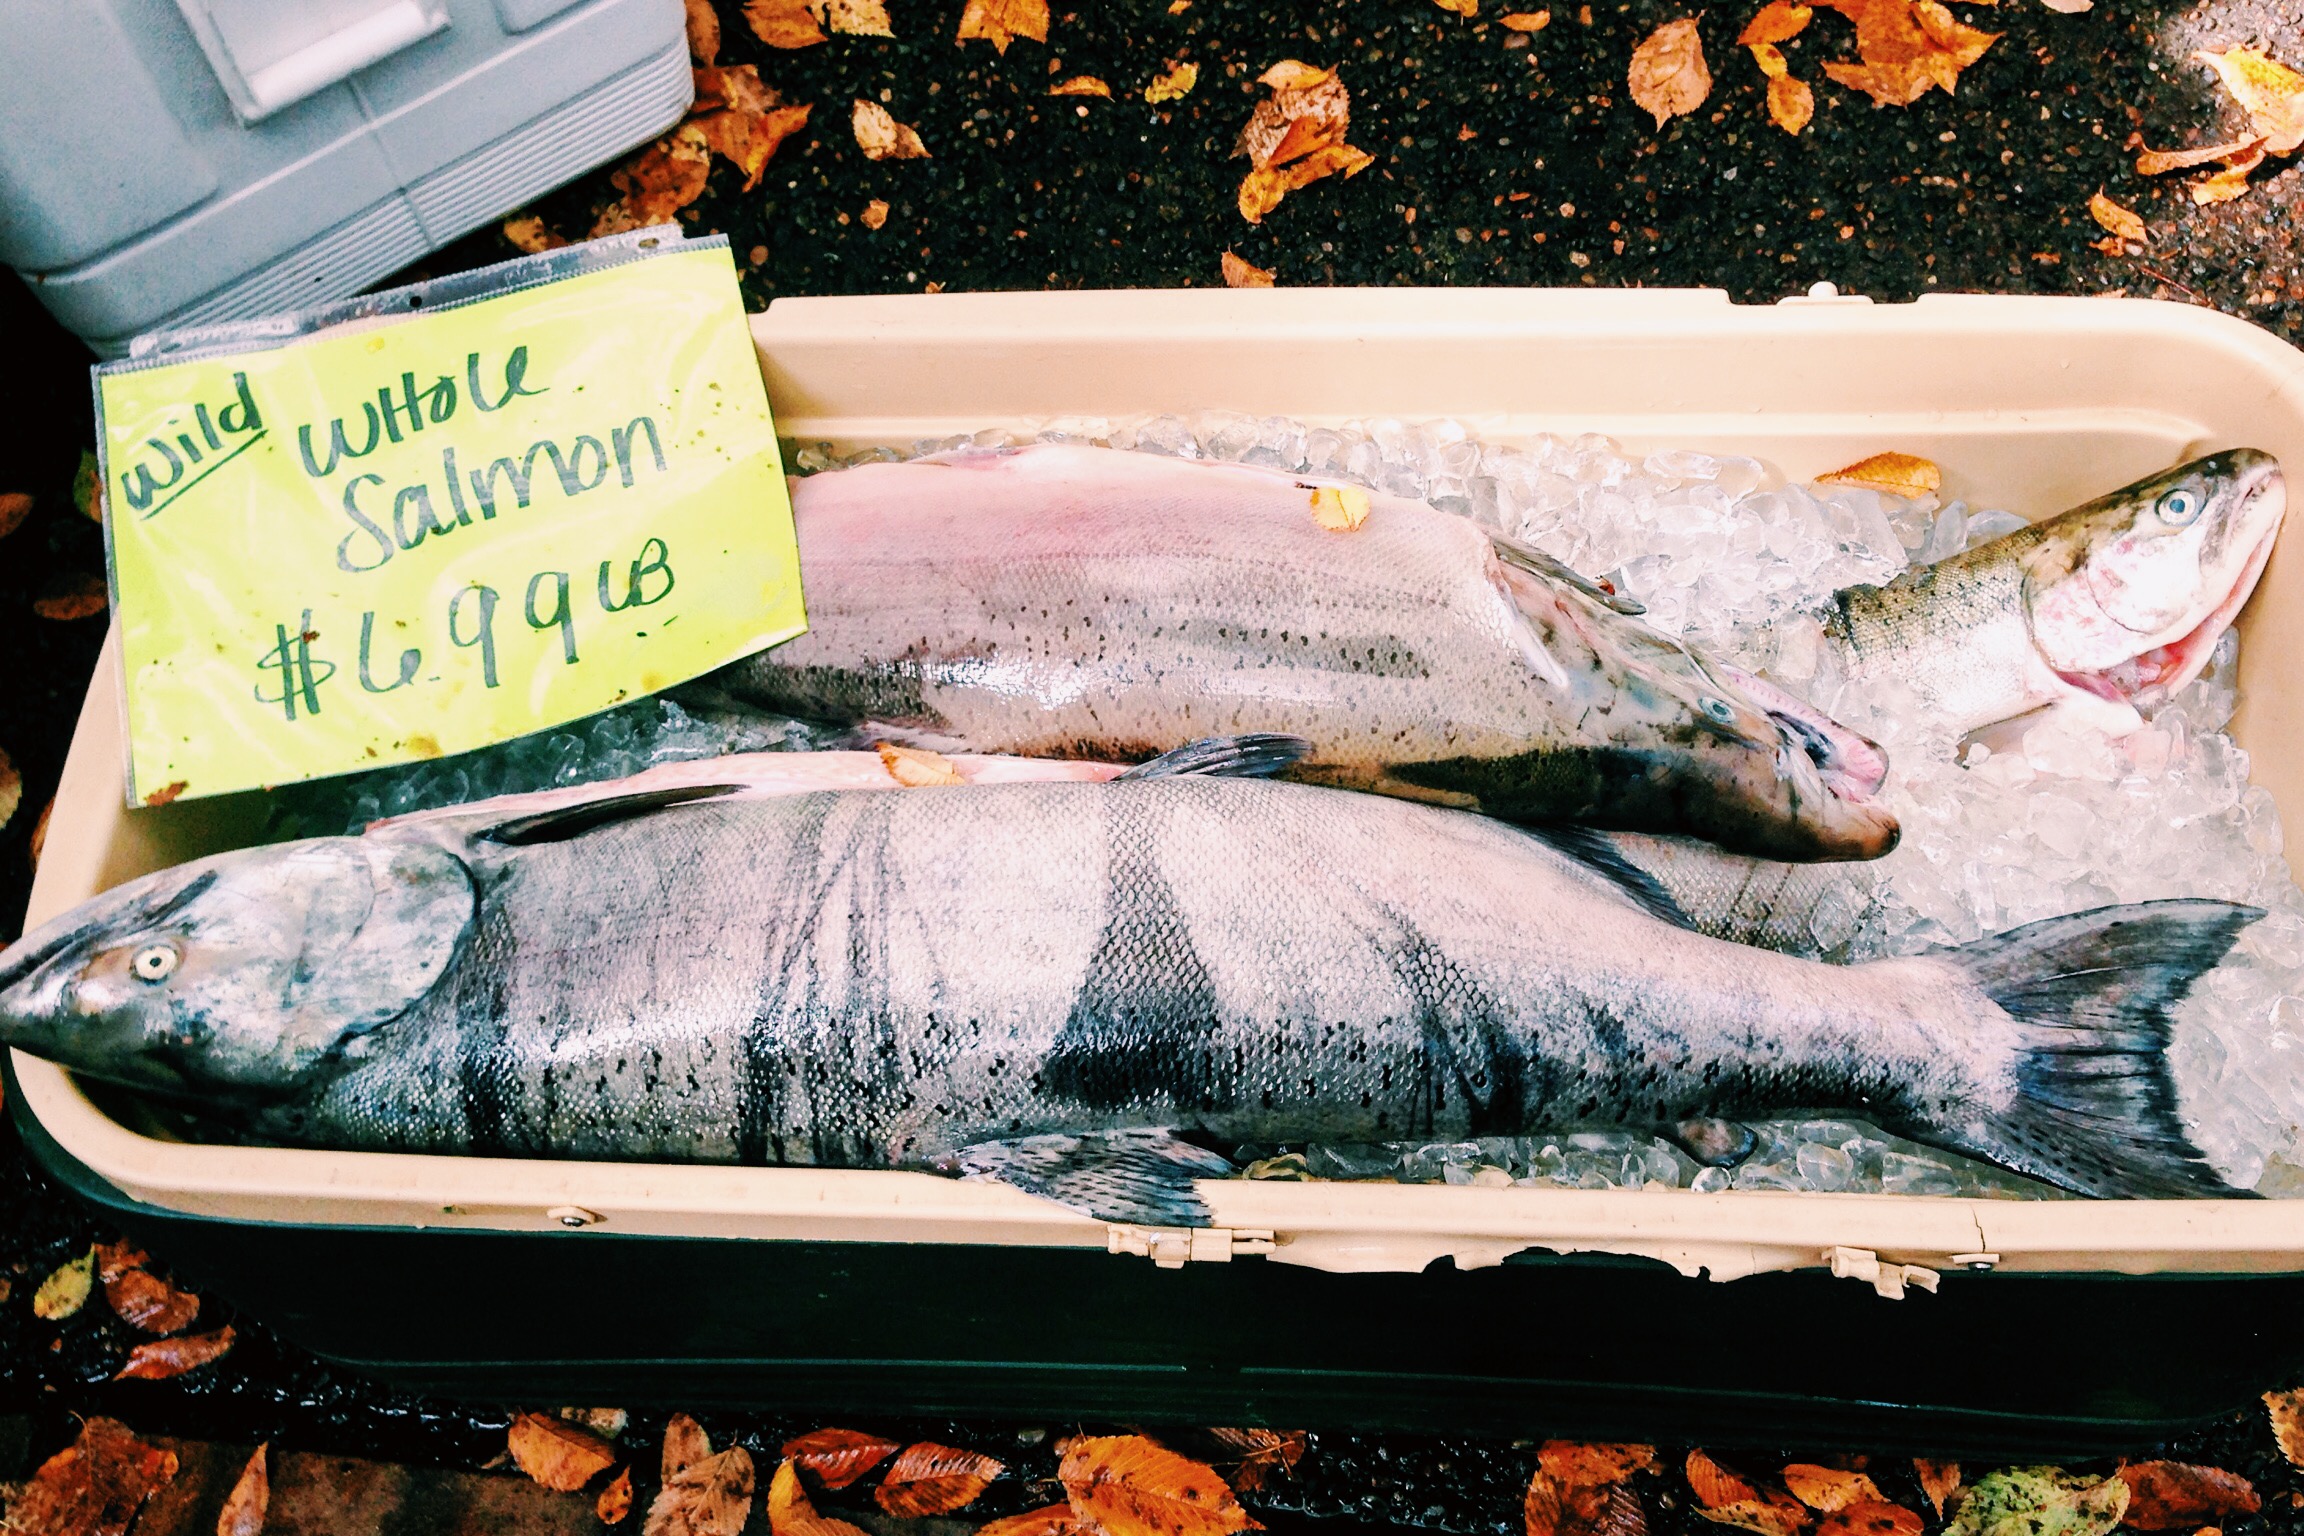 Wild WHole
Salmon
$6.99 LB